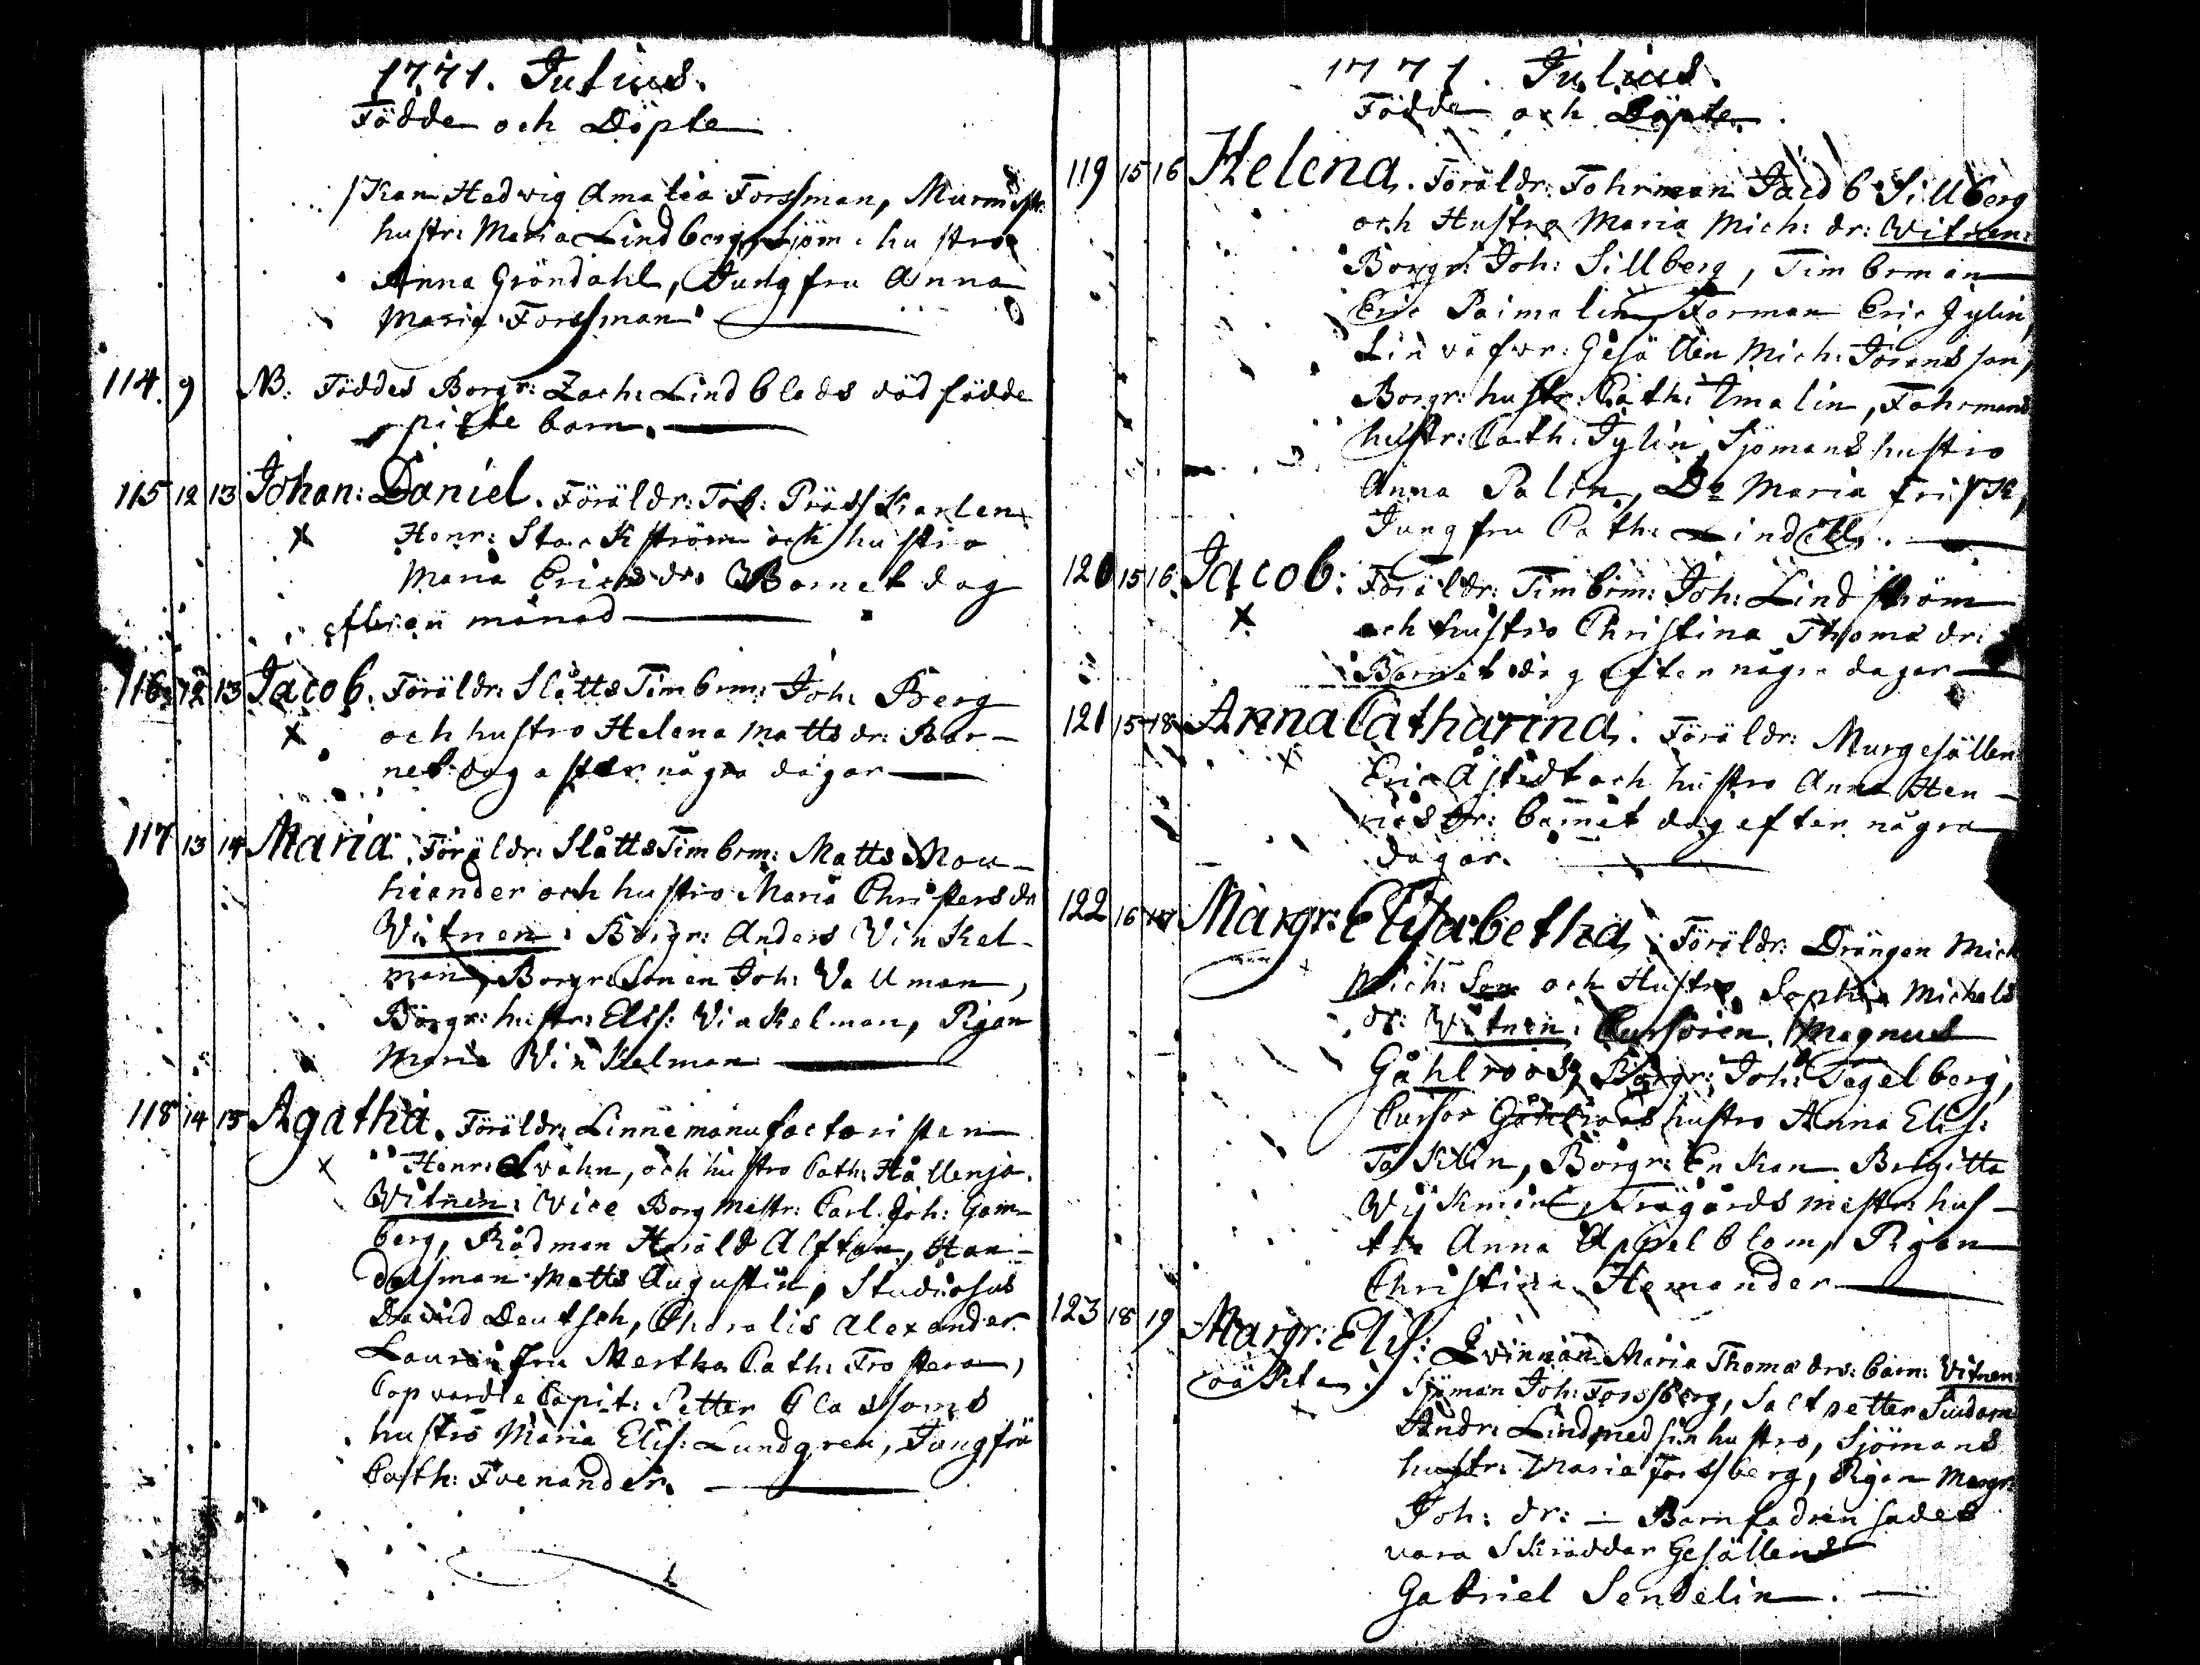 1771. Julius.
Födde och Döpte
/Kan Hedvig Amalia Forssman, Murmstr:
hustr: Maria Lindberg, Sjöm: hustro
Anna Gröndahl, Jungfru Anna
Maria Forssman
114. 9 NB: Föddes Borgr: Zach: Lindblads dödfödde
piltebarn.
115 12 13 Johan: Daniel. Föräldr: Tob:
Henr: Stackström och hustro
Maria Ericsdr. Barnet dog
efter en månad
116 12 13 Jacob. Föräldr: Slåtts Timbrm: Joh: Berg
x och hustro Helena Mattsdr: Bar-
net dog efter några dagar
117 13 14 Maria. Föräldr: Slåtts Timbrm: Matts Mou-
hiander och hustro Maria Christersdr
Vitnen: Borgr: Anders Vinkel-
man, Borgr: Sonen Joh: Vallman,
Borgr: hustr: Elis: Vinkelman, Pigan
Maria Vinkelman
118 14 15 Agatha. Föräldr: Linnemanufactoristen
x Henr: Svahn, och hustro Cath:
Witnen: Vice Borgmestr: Carl Joh: Gam-
berg, Rådman Harald Alftan, Han-
delsman Matts Augustin, Studiosus
David Deutsch, Choralis Alexander
Laur: fru Mertha Cath: Frostera,
Copvardie Capit: Petter Classons
hustro Maria Elis: Lundgren, Jungfru
Cath: Foenander.
1771. Julius.
Födde och Döpte
119 15 16 Helena. Föräldr: Fohrman Jacob Sillberg
och Hustro Maria Mich: dr: Witnen:
Borgr: Joh: Sillberg, Timbrman
Eric Paimalin, Forman Eric Jylin,
Linväfvr: Gesällen Mich: Jöransson,
Borgr: hustr: Cath: Imalin, Fohrmans
hustr: Cath: Jylin, Sjömans hustro
Anna Palin, Do Maria Frisk,
Jungfru Cath: Lindell.
120 15 16 Jacob: Föräldr: Timbrm: Joh: Lindström
x och hustro Christina Thomædr:
Barnet dog efter några dagar
121 15 18 Anna Catharina. Föräldr: Murgesällen
x Eric Åstedt och hustro Anna Hen-
ricsdr: barnet dog efter några
dagar.
122 16 Margr: Elisabetha. Föräldr: Drängen Mich
Mich: Son och Hustro Sophia Michels
dr: Witnen: Cursoren Magnus
Gåhlroos, Borgr: Joh: Tegelberg,
Cursor Gåhlroos hustro Anna Elis:
Borgr: Enkan Brigitta
Trägårdsmestr: hus-
tro Anna Appelblom, Pigan
Christina Hemander
123 18 19 Margr: Elis: Qvinnan Maria Thomædrs: barn: Vitnen:
oäkta. Sjöman Joh: Forssberg, Saltpetter Siudarn
Andr: Lind med sin hustro, Sjömans
hustr: Maria Forssberg, Pigan Margr:
Joh: dr: - Barnfadren sades
vara Skräddar Gesällens
Gabriel Sendelin.